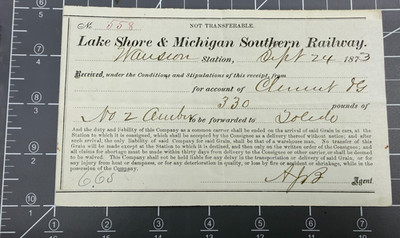 NOT TRANSFERABLE.
No. 558
Lake Shore & Michigan Southern Railway.
Wauseon Station, Sept 24 1873
Received, under the Conditions and Stipulations of this receipt, from
for account of Clement
330 pounds of
No 2 Amber to be forwarded to Toledo
And the duty and liability of this Company as a common carrier shall be ended on the arrival of said Grain in cars, at the
Station to which it is consigned, which shall be accepted by the Consignee as a delivery thereof without notice; and after
such arrival, the only liability of said Company for said Grain, shall be that of a warehouse man. No transfer of this
Grain will be made except at the Station to which it is destined, and then only on the written order of the Consignee; and
all claims for shortage must be made within thirty days from delivery to the Consignee or other carrier, or shall be deemed
to be waived. This Company shall not be held liable for any delay in the transportation or delivery of said Grain, or for
any injury from heat or dampness, or for any deterioration in quality, or loss by fire or accident or shrinkage, while in the
possession of the Company.
Agent.
1
2
3
4
5
6
7
8
9
10